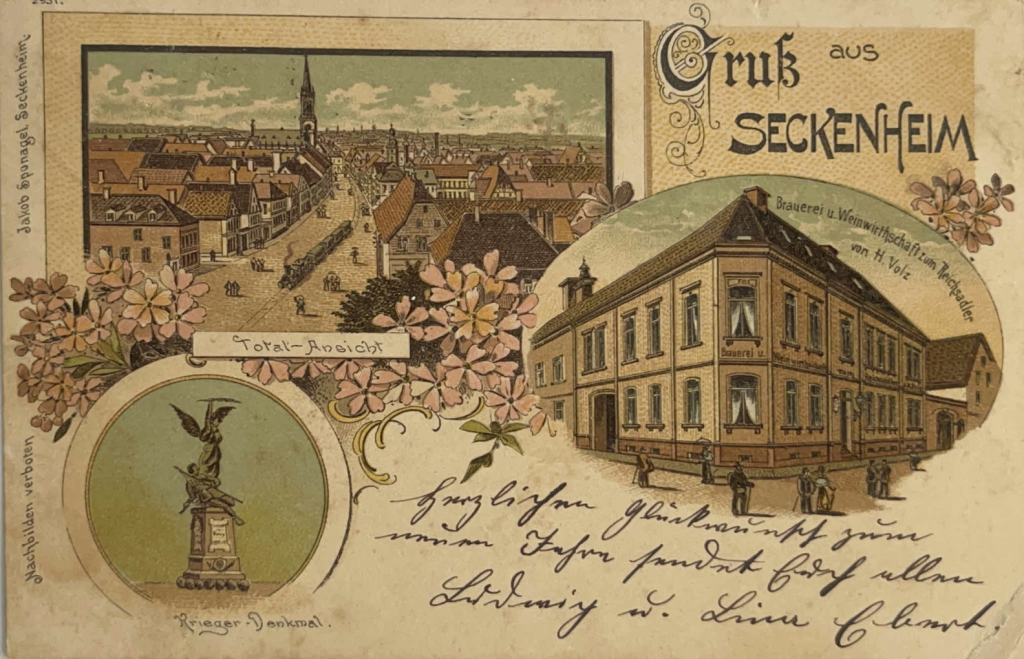 2931.
Jakob Sponagel, Seckenheim.
Nachbilden verboten
Gruß aus
SECKENHEIM
Brauerei u. Weinwirthschaft zum Reichsadler
von H. Volz
Brauerei u.
Total-Ansicht
Krieger-Denkmal.
Herzlichen Glückwunsch zum
neuen Jahre sendet Euch allen
Ludwig u. Lina Ebert.